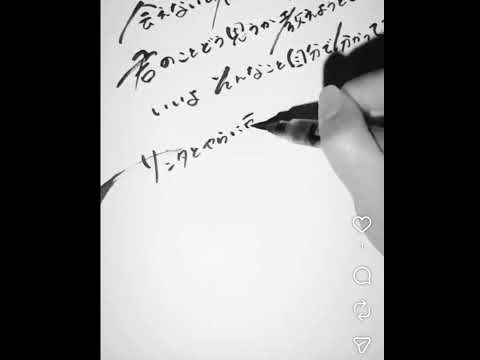 会えないと
君のことどう思うか教えようと
いいよ そんなこと自分で分かって
サンタとやらに